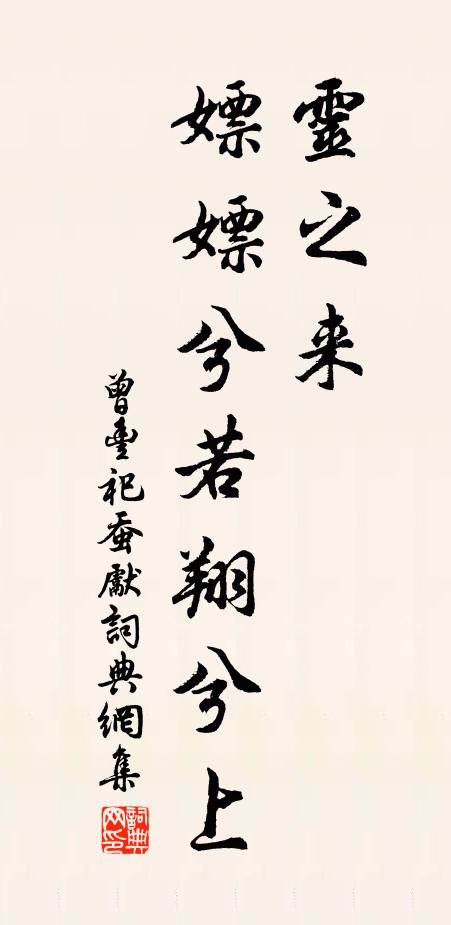 靈之来
嫖嫖兮若翔兮上
曾豐祀蚕獻詞典網集
詞典网印